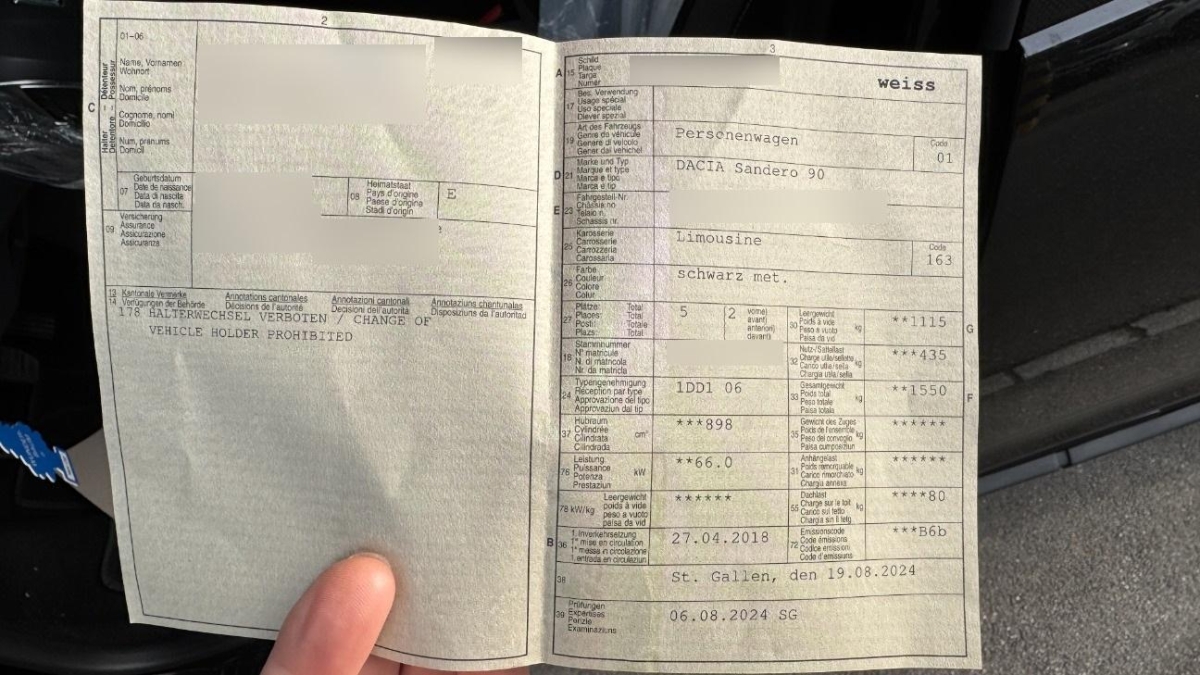 2
01-06
C
Halter
Détenteur
Detentore
Possessur
Name, Vornamen
Wohnort
Nom, prénoms
Domicile
Cognome, nomi
Domicilio
Num, prenums
Domicil
07
Geburtsdatum
Date de naissance
Data di nascita
Data da nasch.
08
Heimatstaat
Pays d'origine
Paese d'origine
Stadi d'origin
E
09
Versicherung
Assurance
Assicurazione
Assicuranza
13
14
Kantonale Vermerke
Verfügungen der Behörde
Annotations cantonales
Décisions de l'autorité
Annotazioni cantonali
Decisioni dell'autorità
Annotaziuns chantunalas
Disposiziuns da l'autoritad
178 HALTERWECHSEL VERBOTEN / CHANGE OF
VEHICLE HOLDER PROHIBITED
3
A 15
Schild
Plaque
Targa
Numer
weiss
17
Bes. Verwendung
Usage spécial
Uso speciale
Diever spezial
19
Art des Fahrzeugs
Genre de véhicule
Genere di veicolo
Gener dal vehichel
Personenwagen
Code
01
D 21
Marke und Typ
Marque et type
Marca e tipo
Marca e tip
DACIA Sandero 90
E 23
Fahrgestell-Nr.
Châssis no
Telaio n.
Schassis nr.
25
Karosserie
Carrosserie
Carrozzeria
Carossaria
Limousine
Code
163
26
Farbe
Couleur
Colore
Colur
schwarz met.
27
Plätze: Total
Places: Total
Posti: Totale
Plazs: Total
5
2
vorne)
avant)
anteriori)
davant)
30
Leergewicht
Poids à vide
Peso a vuoto
Paisa da vid
kg
**1115
G
18
Stammnummer
N° matricule
N. di matricola
Nr. da matricla
32
Nutz-/Sattellast
Charge utile/sellette
Carico utile/sella
Chargia utila/sella
kg
***435
24
Typengenehmigung
Réception par type
Approvazione del tipo
Approvaziun dal tip
1DD1 06
33
Gesamtgewicht
Poids total
Peso totale
Paisa totala
kg
**1550
F
37
Hubraum
Cylindrée
Cilindrata
Cilindrada
cm³
***898
35
Gewicht des Zuges
Poids de l'ensemble
Peso del convoglio
Paisa cumposiziun
kg
******
76
Leistung
Puissance
Potenza
Prestaziun
kW
**66.0
31
Anhängelast
Poids remorquable
Carico rimorchiato
Chargia annexa
kg
******
78 kW/kg
Leergewicht
poids à vide
peso a vuoto
paisa da vid
******
55
Dachlast
Charge sur le toit
Carico sul tetto
Chargia sin il tetg
kg
****80
B 36
1. Inverkehrsetzung
1re mise en circulation
1a messa in circolazione
1. entrada en circulaziun
27.04.2018
72
Emissionscode
Code émissions
Codice emissioni
Code d'emissiuns
***B6b
38
St. Gallen, den 19.08.2024
39
Prüfungen
Expertises
Perizie
Examinaziuns
06.08.2024 SG